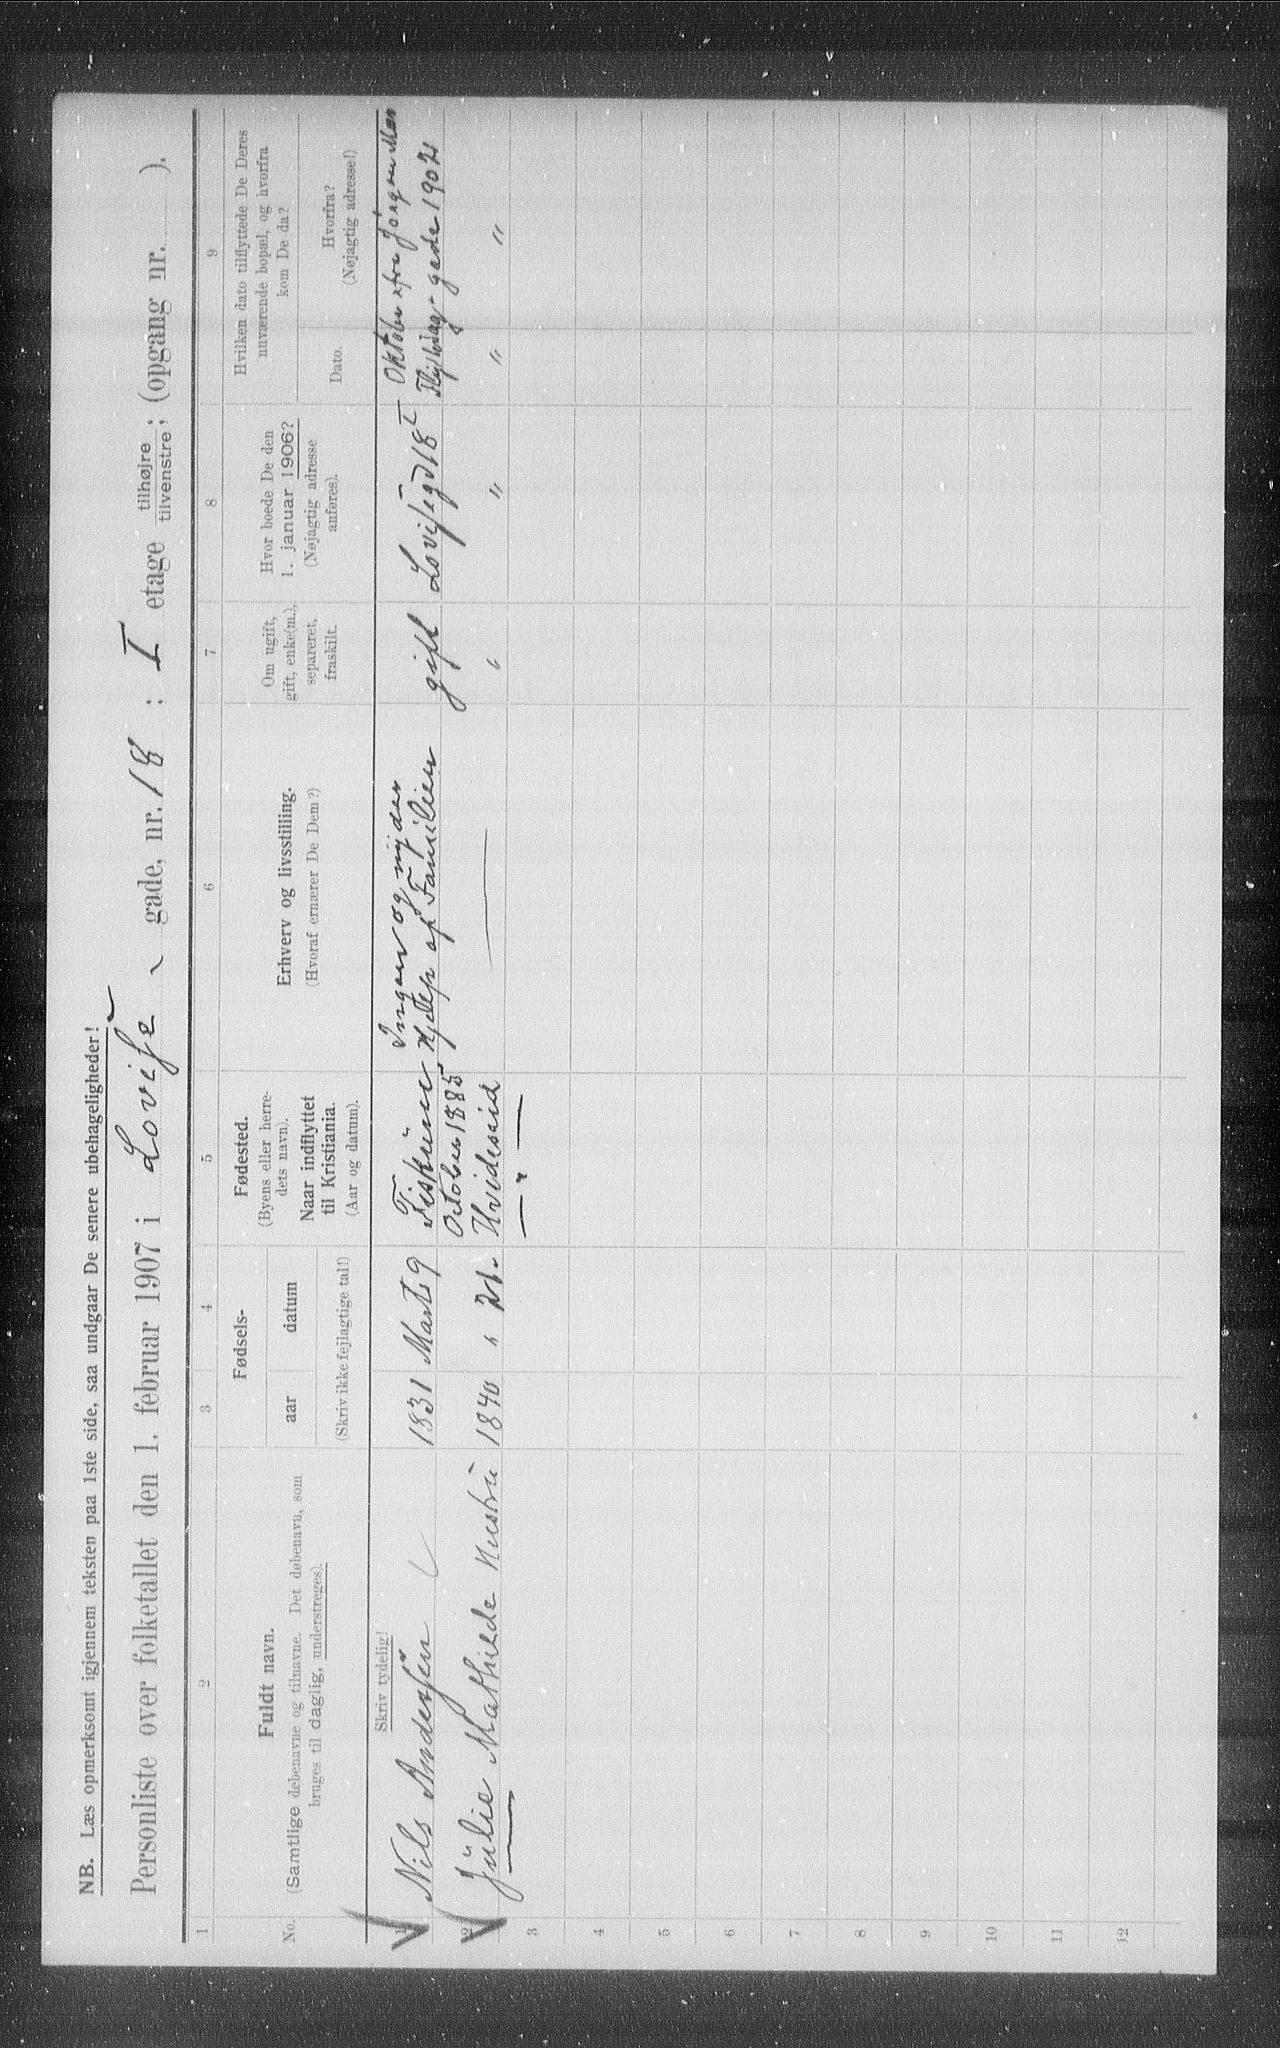 NB. Læs opmerksomt igjennem teksten paa 1ste side, saa undgaar De senere ubehageligheder!
Personliste over folketallet den 1. februar 1907 i Lovise gade, nr. 18 ; I etage tilhøjre tilvenstre; (opgang nr. ).
1 2 3 4 5 6 7 8 9
No.
Fuldt navn.
(Samtlige døbenavne og tilnavne. Det døbenavn, som
bruges til daglig, understreges).
Fødsels-
aar datum
(Skriv ikke fejlagtige tal!)
Fødested.
(Byens eller herre-
dets navn).
Naar indflyttet
til Kristiania.
(Aar og datum).
Erhverv og livsstilling.
(Hvoraf ernærer De Dem?)
Om ugift,
gift, enke(m.),
separeret,
fraskilt.
Hvor boede De den
1. januar 1906?
(Nøjagtig adresse
anføres).
Hvilken dato tilflyttede De Deres
nuværende bopæl, og hvorfra
kom De da?
Dato.
Hvorfra?
(Nøjagtig adresse!)
Skriv tydelig!
1 Nils Andersen 1831 Marts 9
October 1885
Ingen og nyder
Hjelp af Familien
gift
Lovisegd 18 I
Oktober fra Jörgen
gade 1902
2 Julie Mathilde Hustru 1840 " 21
Hvideseid
— " —
" " " "
3
4
5
6
7
8
9
10
11
12